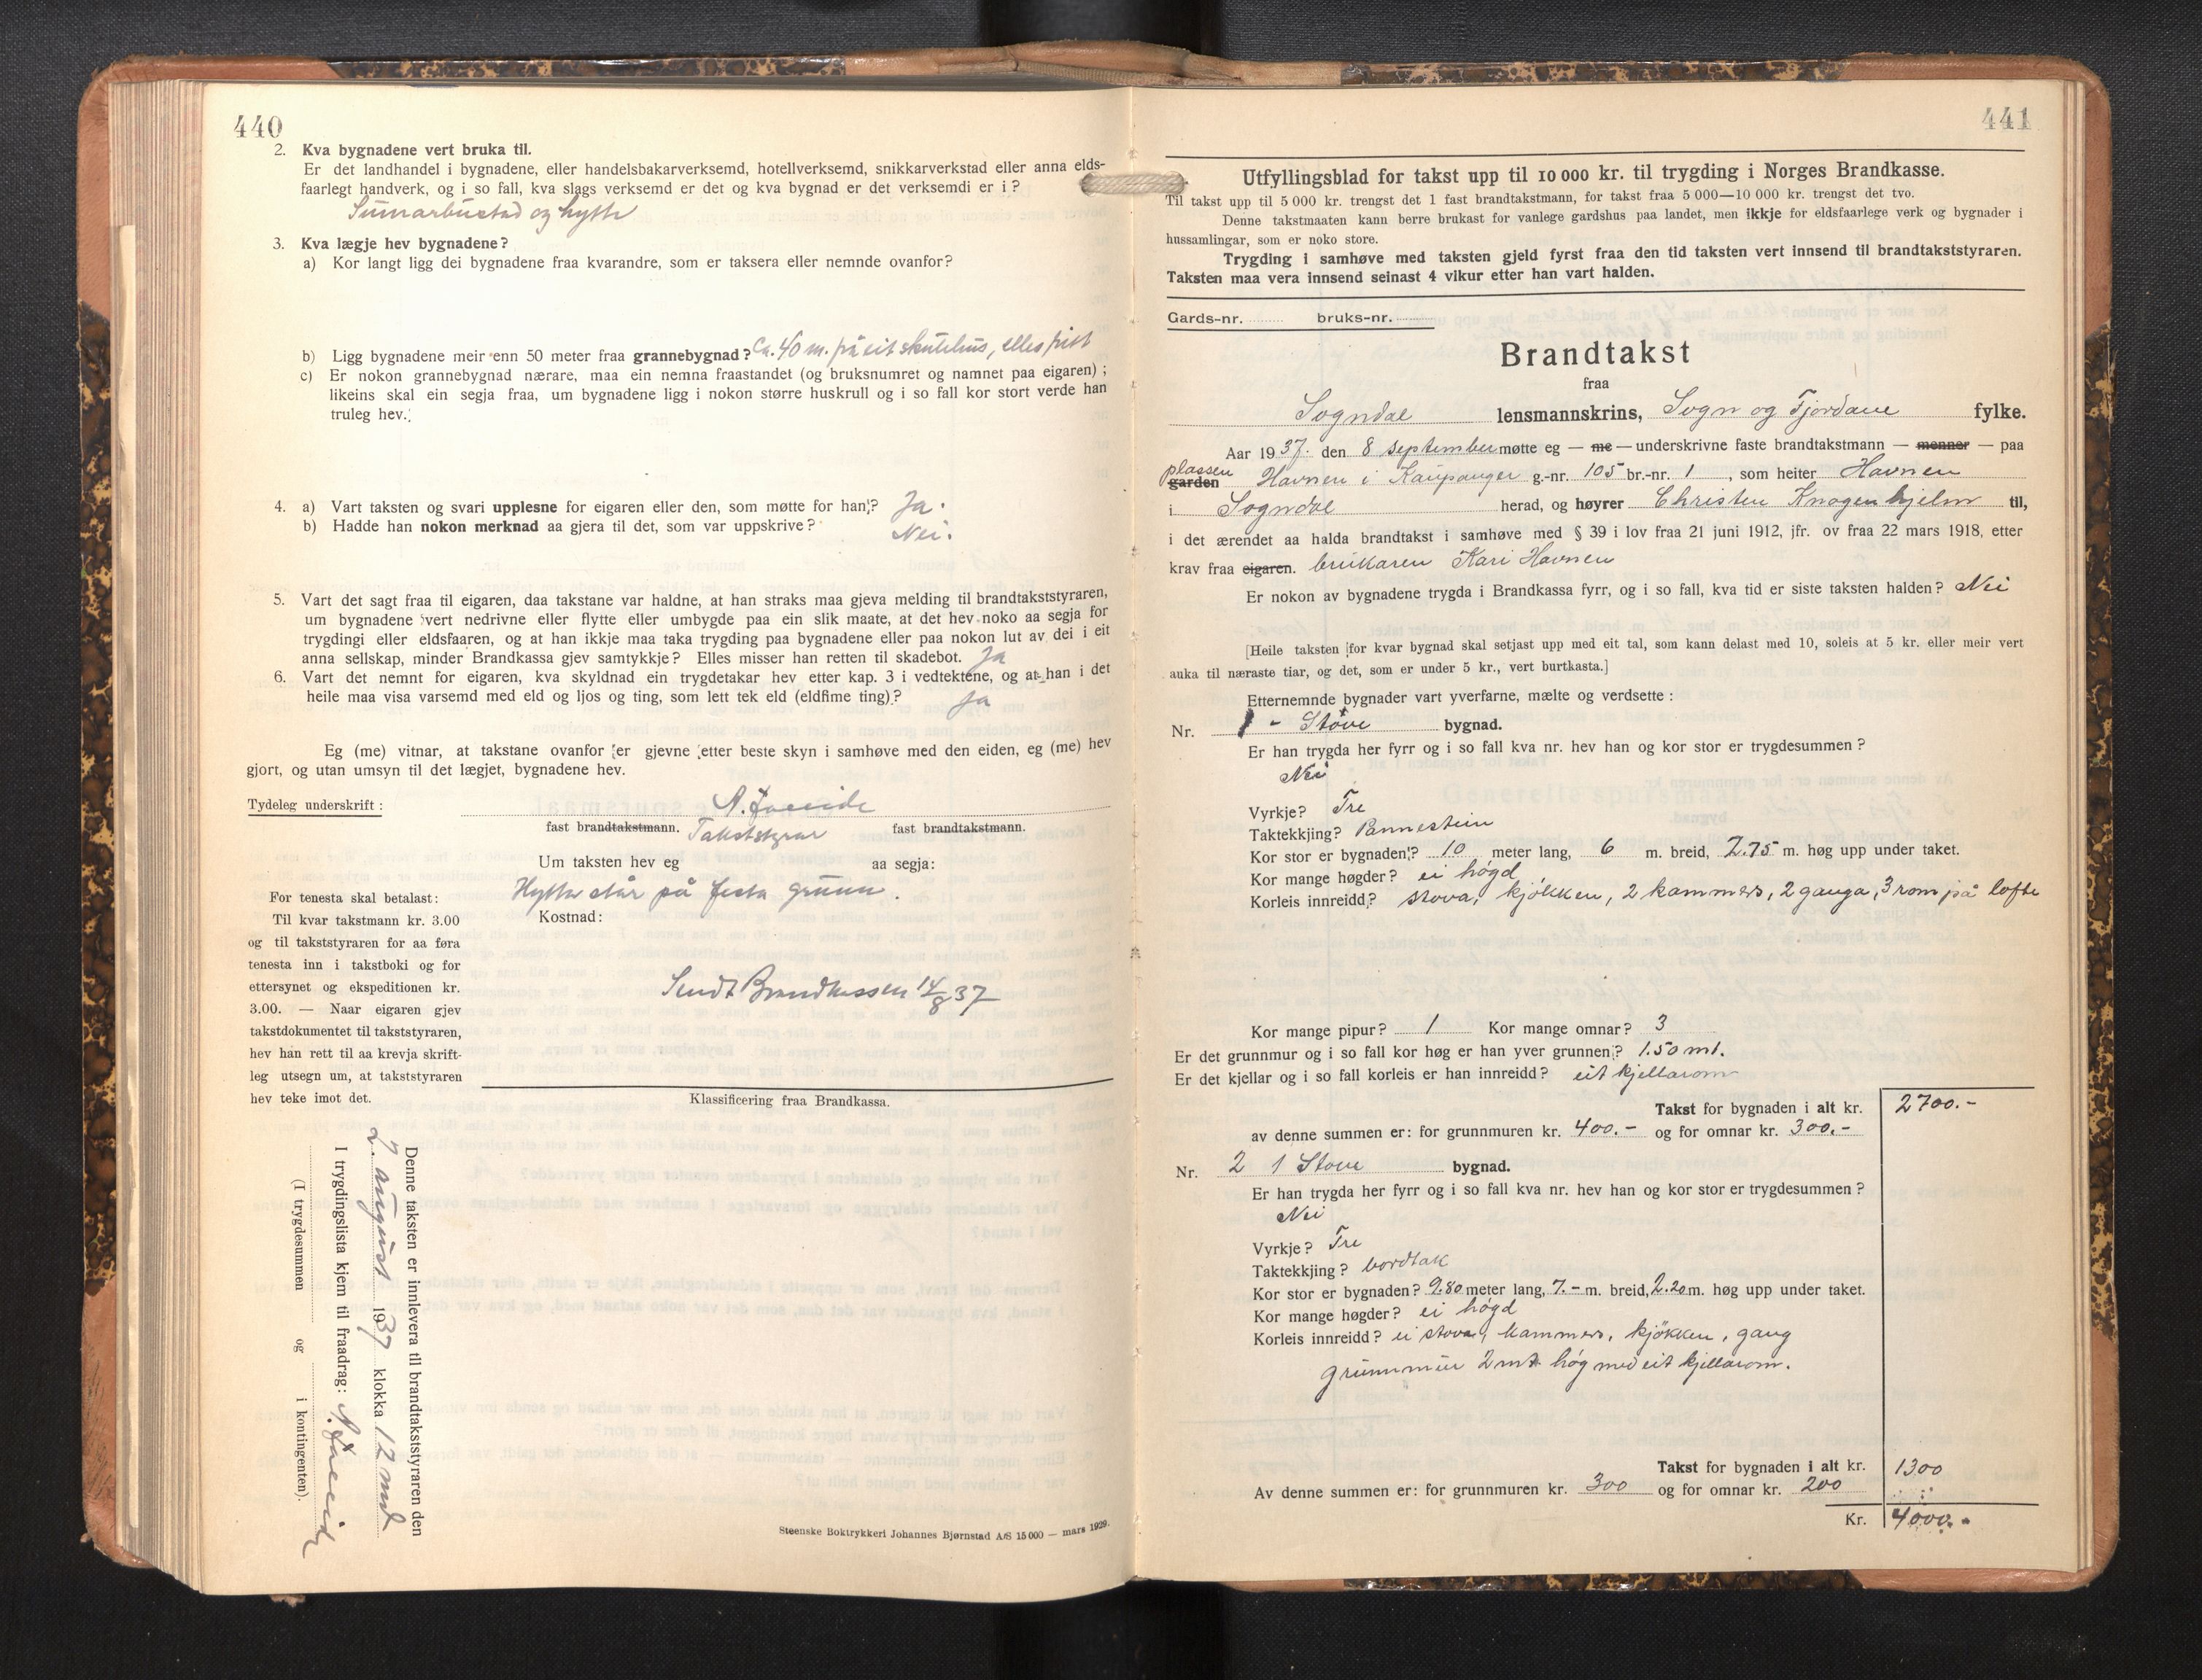 440
2. Kva bygnadene vert bruka til.
Er det landhandel i bygnadene, eller handelsbakarverksemd, hotellverksemd, snikkarverkstad eller anna elds-
faarlegt handverk, og i so fall, kva slags verksemd er det og kva bygnad er det verksemdi er i?
Sumarbustad og hytte
3. Kva lægje hev bygnadene?
a) Kor langt ligg dei bygnadene fraa kvarandre, som er taksera eller nemnde ovanfor?
b) Ligg bygnadene meir enn 50 meter fraa grannebygnad? Ca. 40 m. på eit skutehus, elles fritt
c) Er nokon grannebygnad nærare, maa ein nemna fraastandet (og bruksnumret og namnet paa eigaren);
likeins skal ein segja fraa, um bygnadene ligg i nokon større huskrull og i so fall kor stort verde han
truleg hev.
4. a) Vart taksten og svari upplesne for eigaren eller den, som møtte for han? Ja.
b) Hadde han nokon merknad aa gjera til det, som var uppskrive? Nei.
5. Vart det sagt fraa til eigaren, daa takstane var haldne, at han straks maa gjeva melding til brandtakststyraren,
um bygnadene vert nedrivne eller flytte eller umbygde paa ein slik maate, at det hev noko aa segja for
trygdingi eller eldsfaaren, og at han ikkje maa taka trygding paa bygnadene eller paa nokon lut av dei i eit
anna sellskap, minder Brandkassa gjev samtykkje? Elles misser han retten til skadebot. Ja
6. Vart det nemnt for eigaren, kva skyldnad ein trygdetakar hev etter kap. 3 i vedtektene, og at han i det
heile maa visa varsemd med eld og ljos og ting, som lett tek eld (eldfime ting)? Ja
Eg (me) vitnar, at takstane ovanfor er gjevne etter beste skyn i samhøve med den eiden, eg (me) hev
gjort, og utan umsyn til det lægjet, bygnadene hev.
Tydeleg underskrift:
fast brandtakstmann. Takststyrar fast brandtakstmann.
Um taksten hev eg aa segja:
Hytta står på festa grunn.
Kostnad:
For tenesta skal betalast:
Til kvar takstmann kr. 3.00
og til takststyraren for aa føra
tenesta inn i takstboki og for
ettersynet og ekspeditionen kr.
3.00. — Naar eigaren gjev
takstdokumentet til takststyraren,
hev han rett til aa krevja skrift-
leg utsegn um, at takststyraren
hev teke imot det.
Sendt Brandkassen 14/8 37
Klassificering fraa Brandkassa.
Denne taksten er innlevera til brandtakststyraren den
2. august 1937 klokka 12 md
I trygdingslista kjem til fraadrag:
(I trygdesummen og i kontingenten).
Steenske Boktrykkeri Johannes Bjørnstad A/S 15 000 — mars 1929.
441
Utfyllingsblad for takst upp til 10 000 kr. til trygding i Norges Brandkasse.
Til takst upp til 5 000 kr. trengst det 1 fast brandtakstmann, for takst fraa 5 000—10 000 kr. trengst det tvo.
Denne takstmaaten kann berre brukast for vanlege gardshus paa landet, men ikkje for eldsfaarlege verk og bygnader i
hussamlingar, som er noko store.
Trygding i samhøve med taksten gjeld fyrst fraa den tid taksten vert innsend til brandtakststyraren.
Taksten maa vera innsend seinast 4 vikur etter han vart halden.
Gards-nr. bruks-nr.
Brandtakst
fraa
Sogndal lensmannskrins, Sogn og Fjordane fylke.
Aar 1937. den 8 september møtte eg — me — underskrivne faste brandtakstmann — menner — paa
plassen
garden Havnen i Kaupanger g.-nr. 105 br.-nr. 1, som heiter Havnen
i Sogndal herad, og høyrer Christen Knagenhjelm til,
i det ærendet aa halda brandtakst i samhøve med § 39 i lov fraa 21 juni 1912, jfr. ov fraa 22 mars 1918, etter
krav fraa eigaren. brukaren Kari Havnen
Er nokon av bygnadene trygda i Brandkassa fyrr, og i so fall, kva tid er siste taksten halden? Nei
[Heile taksten for kvar bygnad skal setjast upp med eit tal, som kann delast med 10, soleis at 5 kr. eller meir vert
auka til næraste tiar, og det, som er under 5 kr., vert burtkasta.]
Etternemnde bygnader vart yverfarne, mælte og verdsette:
Nr. 1 - Stove bygnad.
Er han trygda her fyrr og i so fall kva nr. hev han og kor stor er trygdesummen?
Nei
Vyrkje? Tre
Taktekkjing? Pannestein
Kor stor er bygnaden? 10 meter lang, 6 m. breid, 2.75 m. høg upp under taket.
Kor mange høgder? ei høgd
Korleis innreidd? stova, kjøkken, 2 kammers, 2 ganga, 3 rom på lofte
Kor mange pipur? 1 Kor mange omnar? 3
Er det grunnmur og i so fall kor høg er han yver grunnen? 1.50 mt.
Er det kjellar og i so fall korleis er han innreidd? eit kjellarom
Takst for bygnaden i alt kr. 2700.-
av denne summen er: for grunnmuren kr. 400.- og for omnar kr. 300.-
Nr. 2 1 Stove bygnad.
Er han trygda her fyrr og i so fall kva nr. hev han og kor stor er trygdesummen?
Nei
Vyrkje? Tre
Taktekkjing? bordtak
Kor stor er bygnaden? 9.80 meter lang, 7.- m. breid, 2.20 m. høg upp under taket.
Kor mange høgder? ei høgd
Korleis innreidd? ei stova, kammers, kjøkken, gang
grunnmur 2 mt. høg med eit kjellarom.
Takst for bygnaden i alt kr. 1300
Av denne summen er: for grunnmuren kr. 300 og for omnar kr. 200
Kr. 4000.-